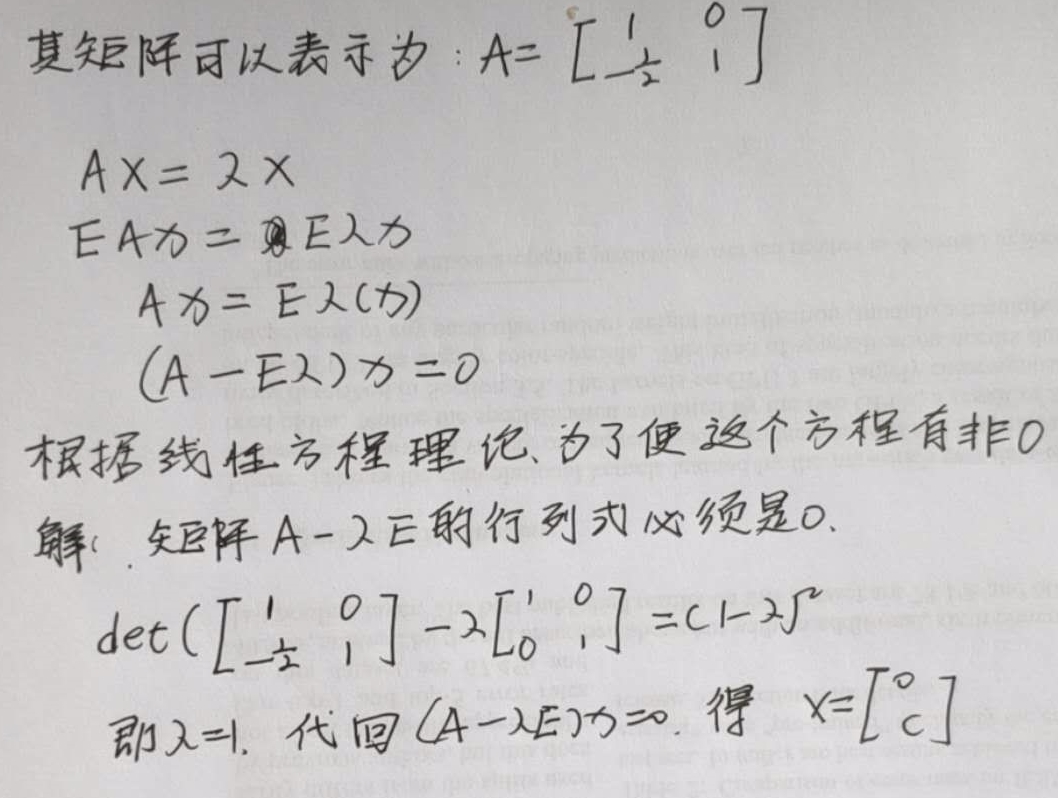 其矩阵可以表示为:A= [1 0 -1/2 1]
AX=λX
EAx=Eλx
Ax=Eλ(x)
(A-Eλ)x=0
根据线性方程理论,为了使这个方程有非0
解,矩阵A-λE的行列式必须是0.
det([1 0 -1/2 1]-λ[1 0 0 1]=(1-λ)²
即λ=1.代回(A-λE)x=0 得 x=[0 c]